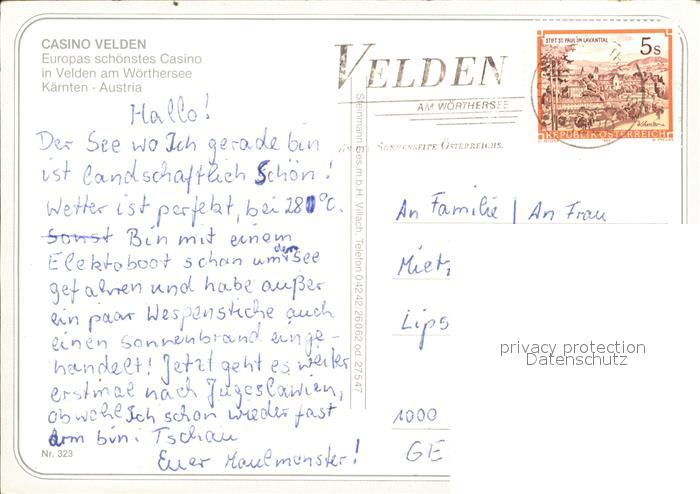 CASINO VELDEN
Europas schönstes Casino
in Velden am Wörthersee
Kärnten - Austria
Hallo!
Der See wo Ich gerade bin
ist landschaftlich Schön!
Wetter ist perfekt, bei 28°C.
Sonst Bin mit einem
Elektoboot schon um den See
gefahren und habe außer
ein paar Wespenstiche auch
einen Sonnenbrand einge-
handelt! Jetzt geht es weiter
erstmal nach Jugoslawien,
obwohl Ich schon wieder fast
arm bin! Tschau
Euer Maulmonster!
Nr. 323
Steinmann Ges.m.b.H. Villach, Telefon 04242/26062 od. 27547
VELDEN
AM WÖRTHERSEE
SONNENSEITE ÖSTERREICHS.
STIFT ST. PAUL IM LAVANTTAL
5 S
REPUBLIK ÖSTERREICH
An Familie / An Frau
Miet
Lips
1000
GE
privacy protection
Datenschutz